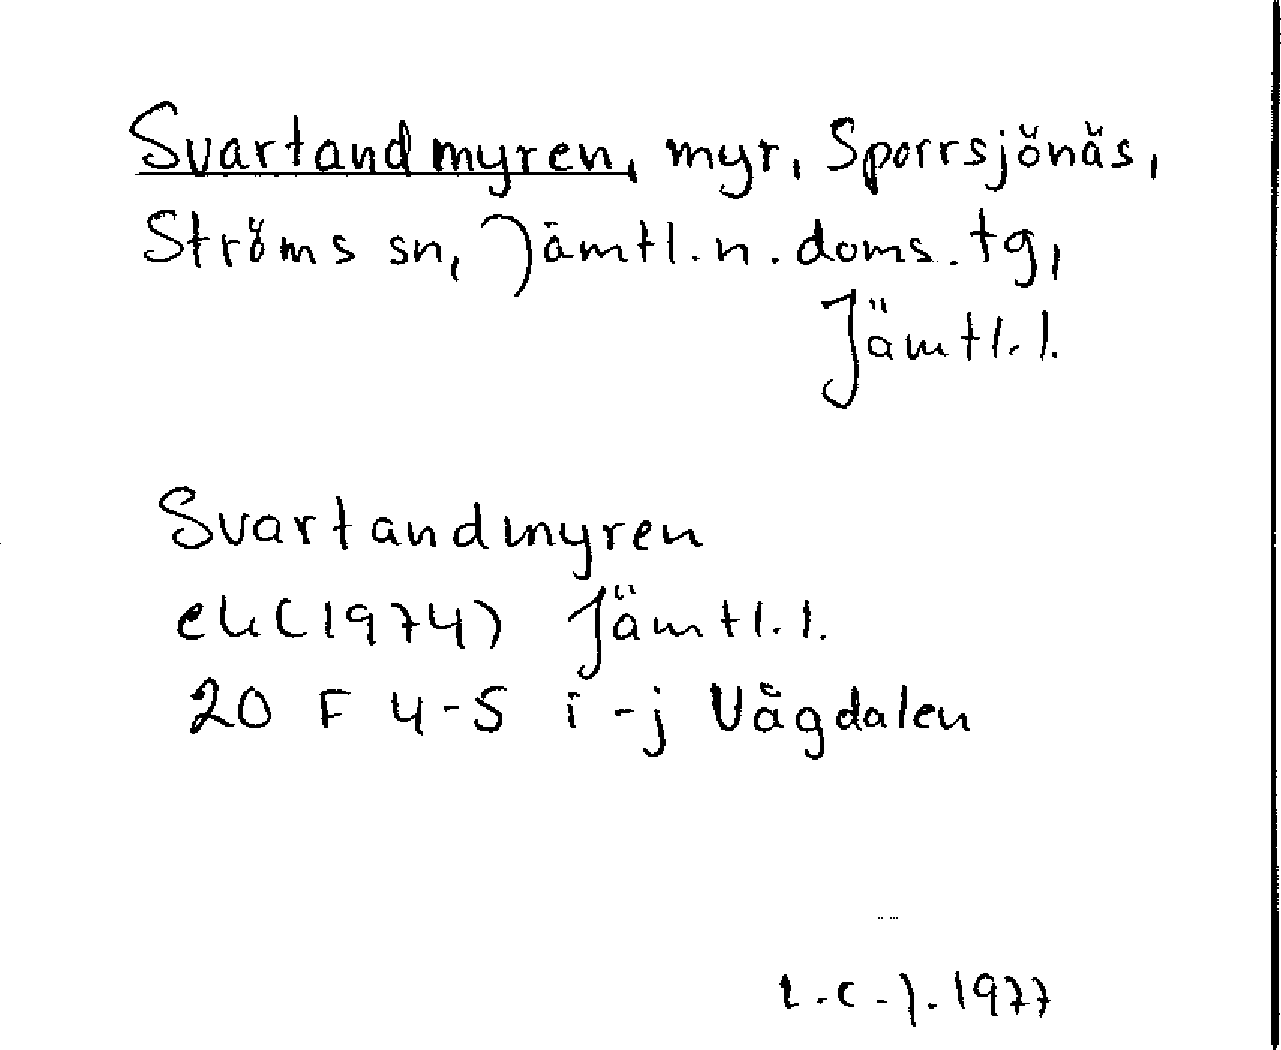 Svartandmyren, myr, Sporrsjönäs,
Ströms sn, Jämtl. n. doms. tg,
Jämtl. l.
Svartandmyren
ek (1974) Jämtl. l.
20 F 4-5 i-j Vågdalen
1977